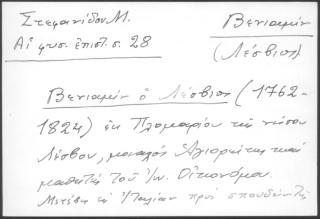 Στεφανίδου Μ.
Αἱ φυσ. ἐπιστ. σ. 28
Βενιαμὶν
(Λέσβιος)
Βενιαμὶν ὁ Λέσβιος (1762-
1824) ἐκ Πλωμαρίου τῆς νήσου
Λέσβου, μοναχὸς Ἁγιορείτης καὶ
μαθητὴς τοῦ Ἰω. Οἰκονόμου.
Μετέβη εἰς Ἰταλίαν πρὸς σπουδὴν